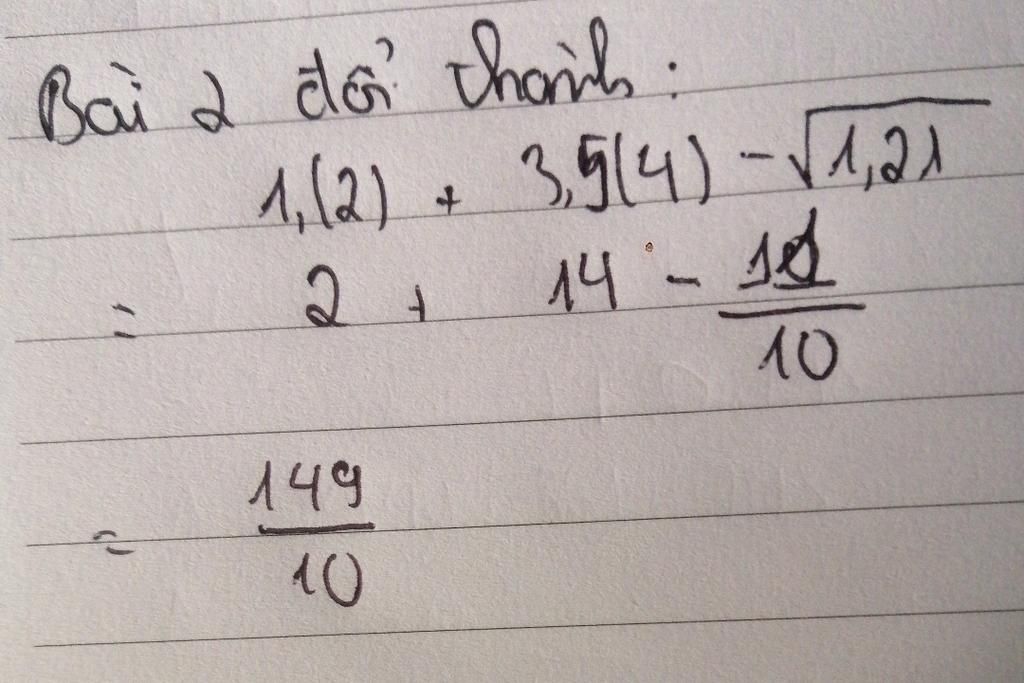 Bài 2 đổi thành:
1,(2) + 3,5(4) - √1,21
= 2 + 14 - 11/10
= 149/10